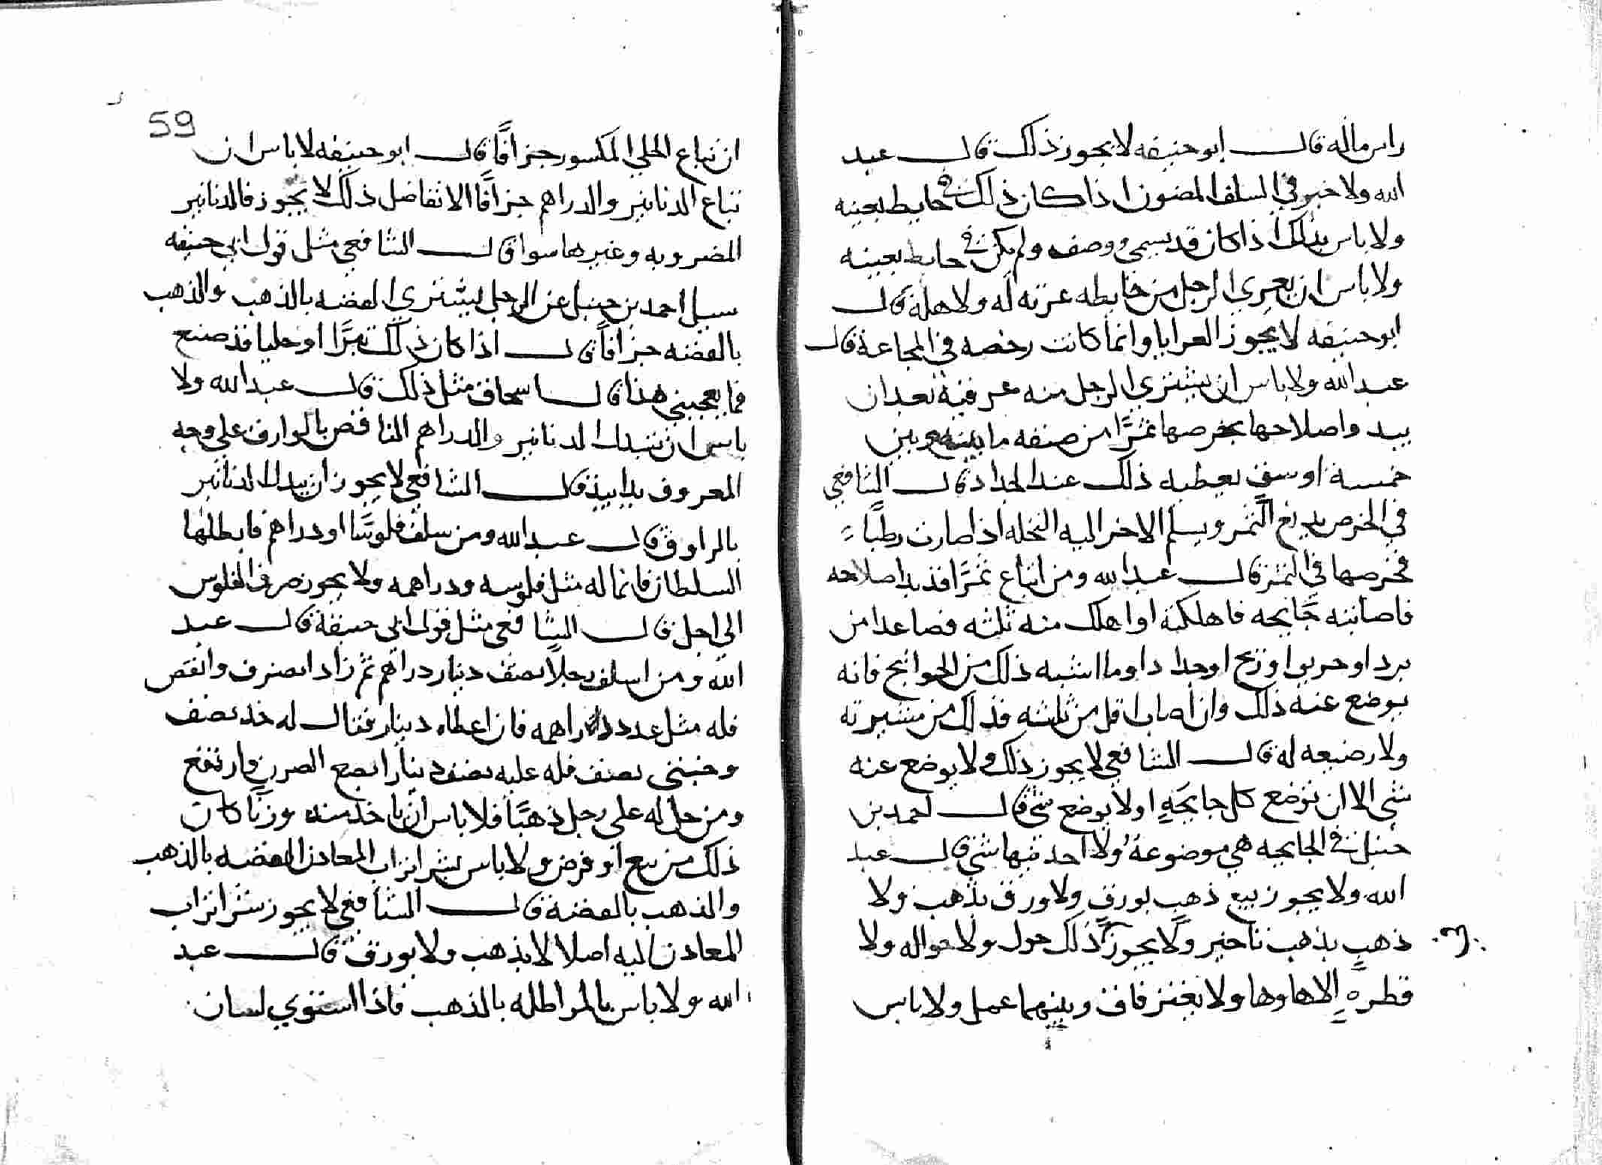 راس ماله قال ابو حنيفه لا يجوز ذلك قال عبد
الله ولا خير في السلف المضمون اذا كان ذلك في حايط بعينه
ولا باس بذلك اذا كان قد يسمى ووصف ولم يكن في حايط بعينه
ولا باس ان يعري الرجل من حايطه عريه له ولاهله قال
ابو حنيفه لا يجوز العرايا وانما كانت رخصه في المجاعة قال
عبد الله ولا باس ان يشتري الرجل منه عريته بعد ان
يبد واصلاحها بخرصها تمرًا من صنفه ما بينه وبين
خمسة اوسق يعطيه ذلك عند الجداد قال الشافعي
في الخرص يدفع التمر ويسلم الاخر اليه النخله اذا صارت رطبًا
فخرصها في التمر قال عبد الله ومن ابتاع تمرًا قد بدا صلاحه
فاصابته جايحه فاهلكته او اهلك منه ثلثه فصاعدا من
برد او حر او ريح او جراد او ما اشبه ذلك من الجوايح فانه
يوضع عنه ذلك وان اصاب اقل من ثلثه فذلك من مشتريه
ولا رضيعه له قال الشافعي لا يجوز ذلك ولا يوضع عنه
شي الا ان توضع كل جايحه او لا يوضع شي قال احمد بن
حنبل في الجايحه هي موضوعة ولا احد فيها شي قال عبد
الله ولا يجوز بيع ذهب بورق ولا ورق بذهب ولا
ذهب بذهب تاخير ولا يجوز في ذلك حول ولا حواله ولا
قطره الا ها وها ولا يفترقان وبينهما عمل ولا باس
59
ان تباع الحلي المكسور جزافًا قال ابو حنيفه لا باس ان
تباع الدنانير والدراهم جزافًا الا تفاضل ذلك لا يجوز فالدنانير
المضروبه وغيرها سوا قال الشافعي مثل قول ابي حنيفه
سيل احمد بن حنبل عن الرجل يشتري الفضه بالذهب والذهب
بالفضه جزافًا قال اذا كان ذلك تبرًا او حليا قد صنع
فما يعجبني هذا قال اسحاق مثل ذلك قال عبد الله ولا
باس ان تبدل الدنانير والدراهم الناقص بالوازن على وجه
المعروف يدا بيد قال الشافعي لا يجوز ان يبدل الدنانير
قال عبد الله ومن سلف فلوسًا او دراهم فابطلها
السلطان فانما له مثل فلوسه ودراهمه ولا يجوز صرف الفلوس
الى اجل قال الشافعي مثل قول ابي حنيفة قال عبد
الله ومن اسلف رجلًا نصف دينار دراهم ثم زاد الصرف وانقص
فله مثل عدد دراهمه فان اعطاه دينار فقال له خذ نصف
نصف فله عليه نصف دينار ارتفع الصرف او ارتفع
ومن حل له على رجل ذهبًا فلا باس ان ياخذ منه ورقًا كان
ذلك من بيع او قرض ولا باس بشرا تراب المعادن الفضه بالذهب
والذهب بالفضة قال الشافعي لا يجوز شرا تراب
المعادن اليه اصلا لا بذهب ولا بورق قال عبد
الله ولا باس بالمراطله بالذهب فاذا استوي لسان